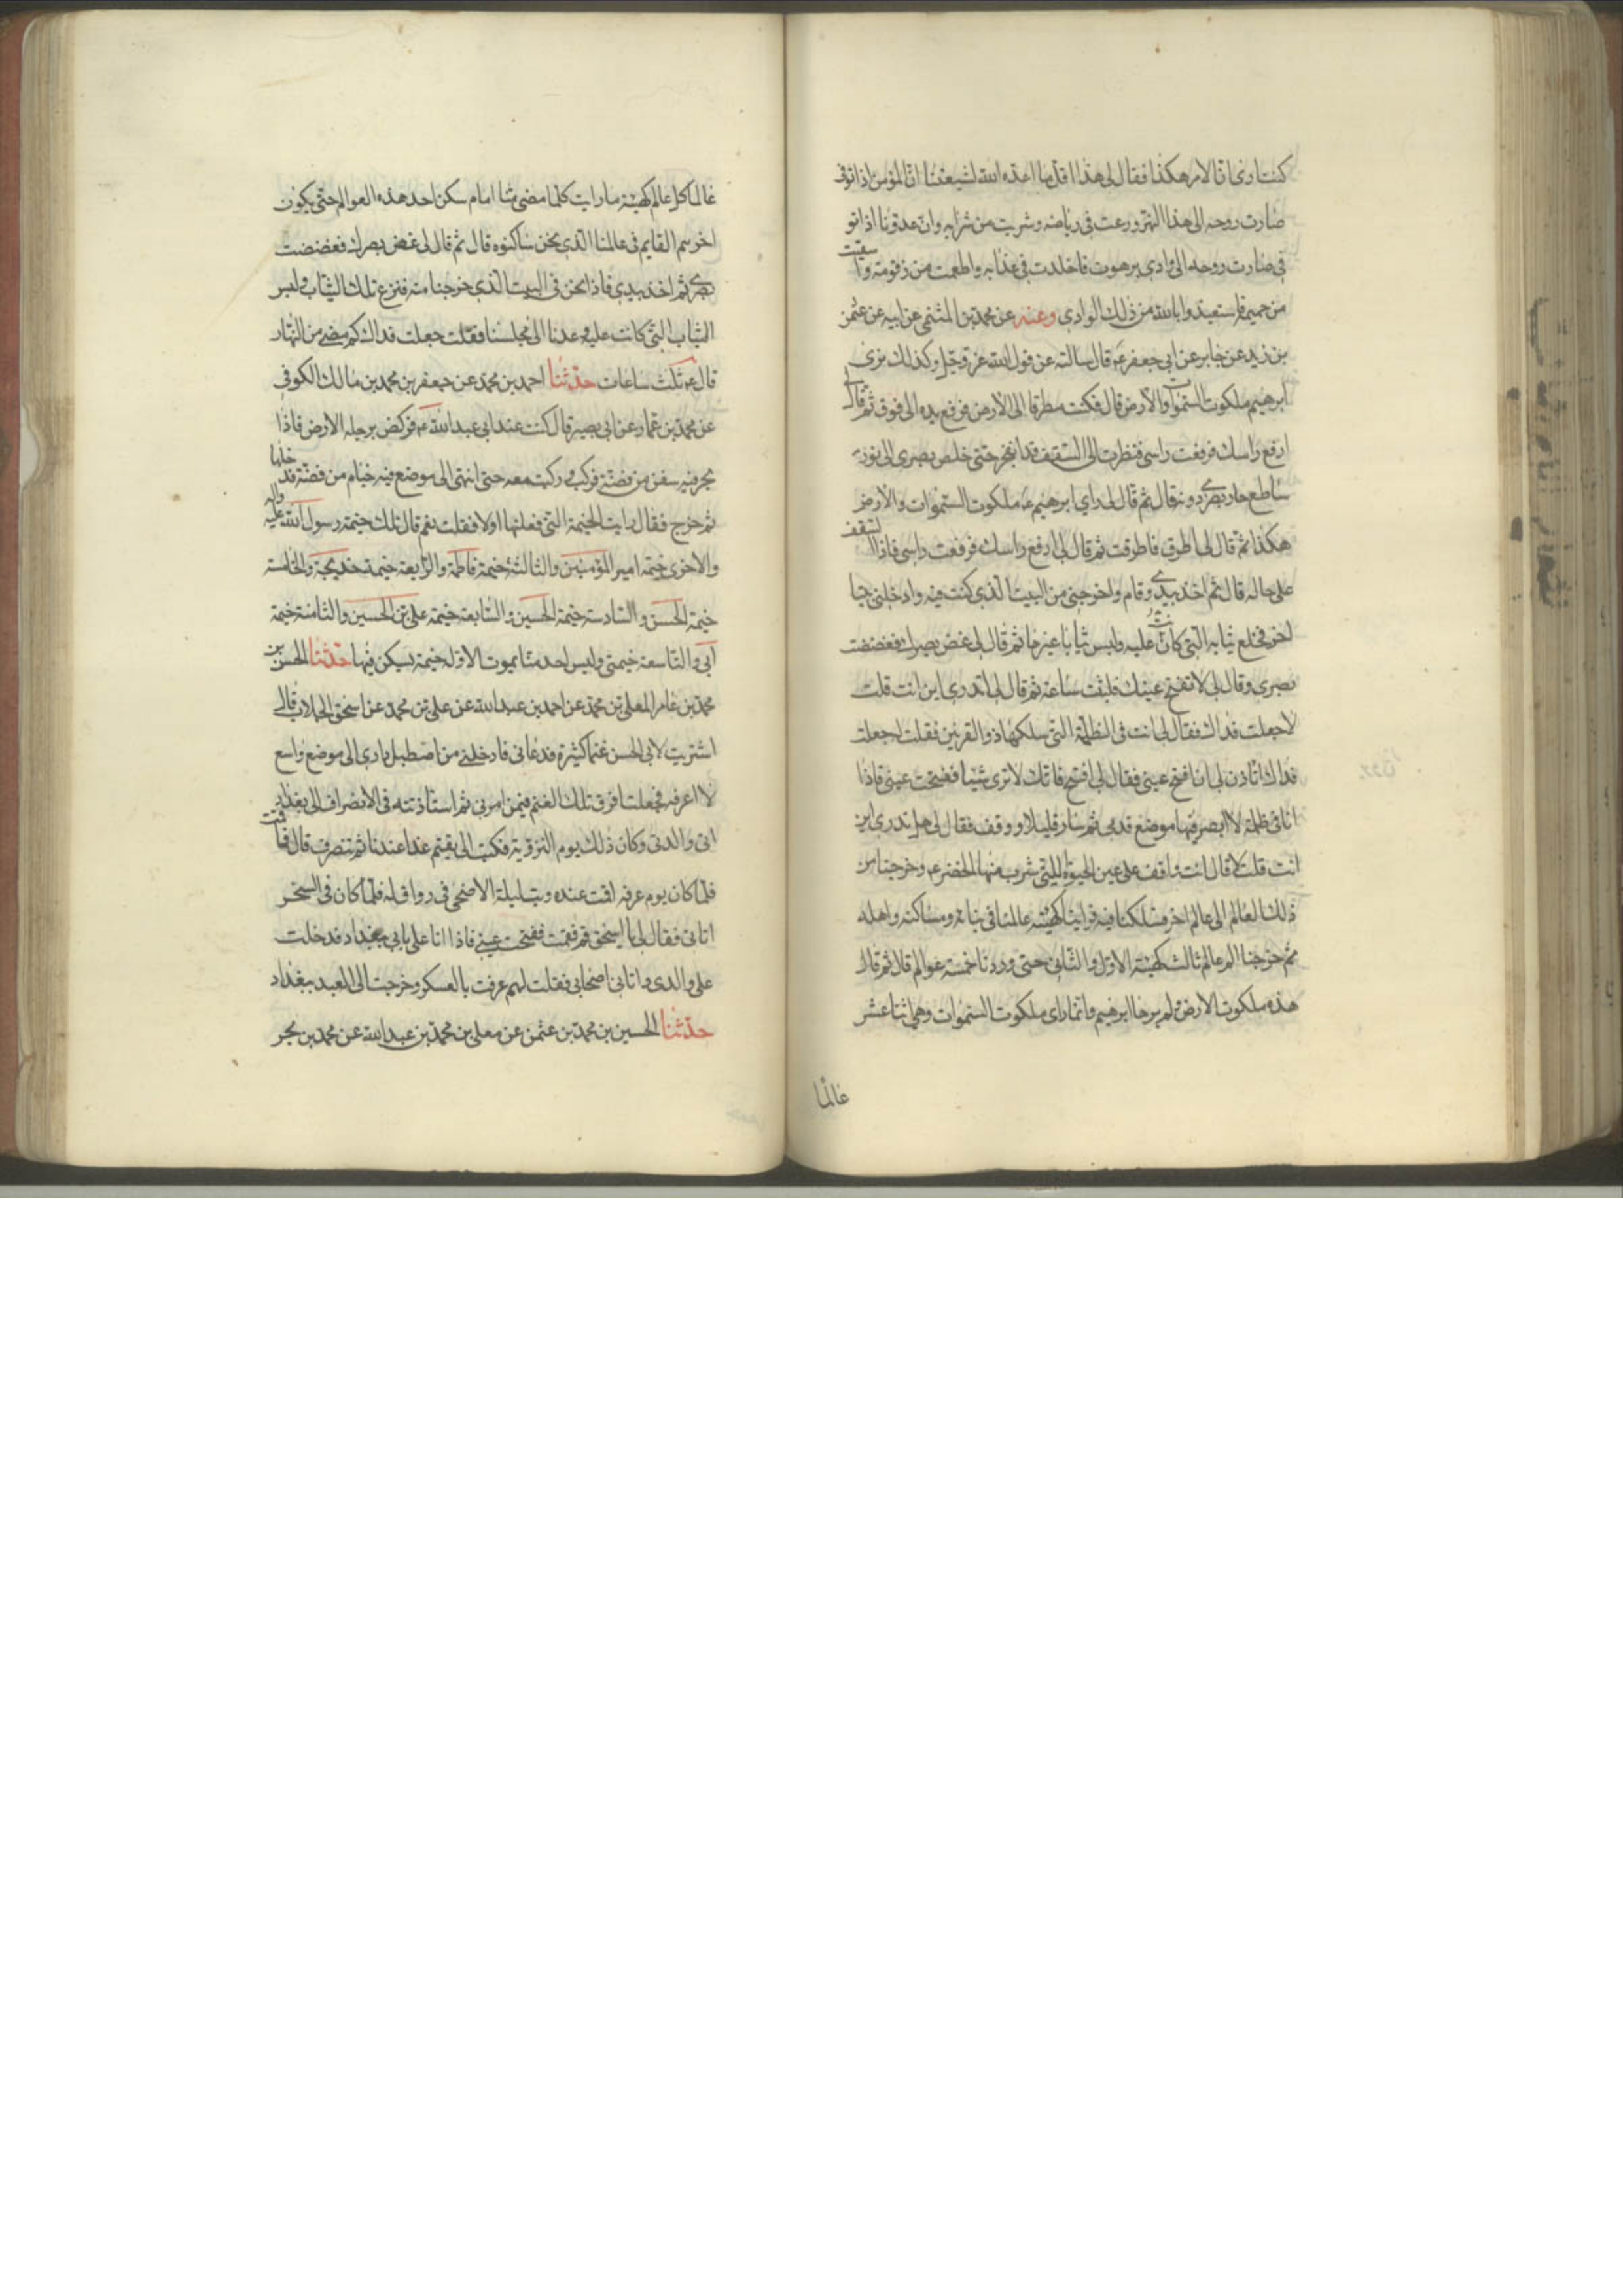 كنت ارى ان الامر هكذا فقال لى هذا اقل ما اعده الله لشيعتنا ان المؤمن اذا توفى
صارت روحه الى هذا النهر ورعت فى رياضه وشربت من شرابه وان عدونا اذا تو
فى صارت روحه الى وادى برهوت فاخلدت فى عذابه واطعمت من زقومه وا سقيت
من حميمه فاستعيذوا بالله من ذلك الوادى وعنه عن محمد بن المثنى عن ابيه عن عثمن
بن زيد عن جابر عن ابى جعفر ع قال سالته عن قول الله عز وجل وكذلك نرى
ابرهيم ملكوت السموات والارض قال فكنت مطرقا الى الارض فرفع يده الى فوق ثم قال لى
ارفع راسك فرفعت راسى فنظرت الى السقف قد انفجر حتى خلص بصرى الى نور
ساطع حار بصرى دونه قال ثم قال لى راى ابرهيم ع ملكوت السموات والارض
هكذا ثم قال لى اطرق فاطرقت ثم قال لى ارفع راسك فرفعت راسى فاذا السقف
على حاله قال ثم اخذ بيدى وقام واخرجنى من البيت الذى كنت فيه وادخلنى بيتا
اخر فخلع ثيابه التى كانت عليه ولبس ثيابا غيرها ثم قال لى غض بصرك فغضضت
بصرى وقال لى لا تفتح عينك فلبثت ساعة ثم قال لى اتدرى اين انت قلت
لا جعلت فداك فقال لى انت فى الظلمة التى سلكها ذو القرنين فقلت له جعلت
فداك اتاذن لى ان افتح عينى فقال لى افتح فانك لا ترى شيئا ففتحت عينى فاذا
انا فى ظلمة لا ابصر فيها موضع قدمى ثم سار قليلا ووقف فقال لى هل تدرى اين
انت قلت لا قال انت واقف على عين الحيوة التى شرب منها الخضر ع وخرجنا من
ذلك العالم الى عالم اخر فسلكنا فيه فراينا كهيئة عالمنا فى بنائه ومساكنه واهله
ثم خرجنا الى عالم ثالث كهيئة الاول والثانى حتى وردنا خمسة عوالم قال ثم قال
هذه ملكوت الارض ولم يرها ابرهيم وانما راى ملكوت السموات وهى اثنا عشر
عالما
عالما كل عالم كهيئة ما رايت كلما مضى منا امام سكن احد هذه العوالم حتى يكون
اخرهم القايم فى عالمنا الذى نحن ساكنوه قال ثم قال لى غض بصرك فغضضت
بصرى ثم اخذ بيدى فاذا نحن فى البيت الذى خرجنا منه فنزع تلك الثياب ولبس
الثياب التى كانت عليه وعدنا الى مجلسنا فقلت جعلت فداك كم مضى من النهار
قال ع ثلث ساعات حدثنا احمد بن محمد عن جعفر بن محمد بن مالك الكوفى
عن محمد بن عمار عن ابى بصير قال كنت عند ابى عبد الله ع فركض برجله الارض فاذا
بحر فيه سفن من فضة فركب وركبت معه حتى انتهى الى موضع فيه خيام من فضة فدخلها
ثم خرج فقال رايت الخيمة التى دخلتها اولا فقلت نعم قال تلك خيمة رسول الله عليه واله
والاخرى خيمة امير المؤمنين والثالثة خيمة فاطمة والرابعة خيمة خديجة والخامسة
خيمة الحسن والسادسة خيمة الحسين والسابعة خيمة على بن الحسين والثامنة خيمة
ابى والتاسعة خيمتى وليس احد منا يموت الا وله خيمة يسكن فيها حدثنا الحسن بن
محمد بن عامر المعلى بن محمد عن احمد بن عبد الله عن على بن محمد عن اسحق الجلاب قال
اشتريت لابى الحسن غنما كثيرة فدعانى فادخلنى من اصطبل داره الى موضع واسع
لا اعرفه فجعلت افرق تلك الغنم فيمن امرنى ثم استاذنته فى الانصراف الى بغداد
الى والدتى وكان ذلك يوم التروية فكتب الى تقيم غدا عندنا ثم تنصرف قال فاقمت
فلما كان يوم عرفه اقمت عنده وبت ليلة الاضحى فى رواق له فلما كان فى السحر
اتانى فقال لى يا اسحق قم فقمت ففتحت عينى فاذا انا على بابى ببغداد فدخلت
على والدى واتانى اصحابى فقلت لهم عرفت بالعسكر وخرجت الى العيد ببغداد
حدثنا الحسين بن محمد بن عثمن عن معلى بن محمد بن عبد الله عن محمد بن بحر